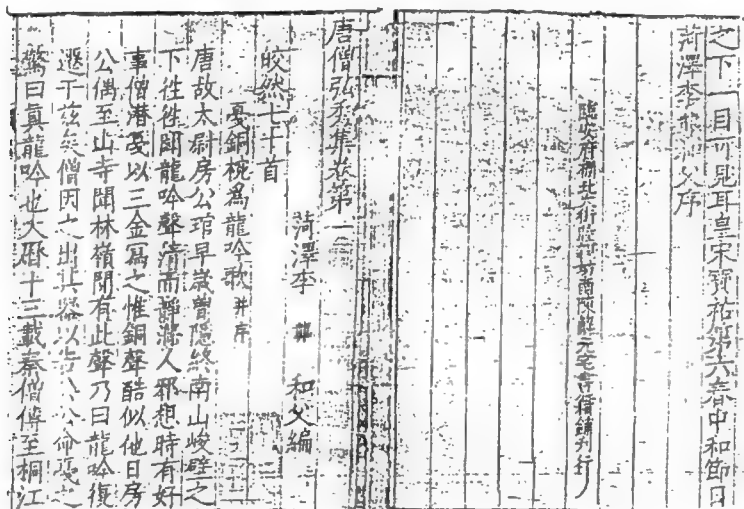 之下一目可見耳皇宋寳祐第六春中和節日
菏澤李龏和父序
臨安府棚北大街睦親坊南陳解元宅書籍鋪刊行
唐僧弘秀集卷第一
菏澤李 龏 和父編
皎然七十首
戞銅椀爲龍吟歌 并序
唐故太尉房公琯早歲曽隱終南山峻壁之
下徃徃聞龍吟聲清而靜滌人邪想時有好
事僧潜戞以三金寫之惟銅聲酷似他日房
公偶至山寺聞林嶺間有此聲乃曰龍吟復
遷于兹矣僧因之出其器以告公公命戞之
驚曰眞龍吟也大曆十三載秦僧傳至桐江